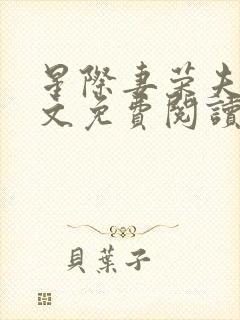 星際妻榮夫
文免費閱讀
貝葉子